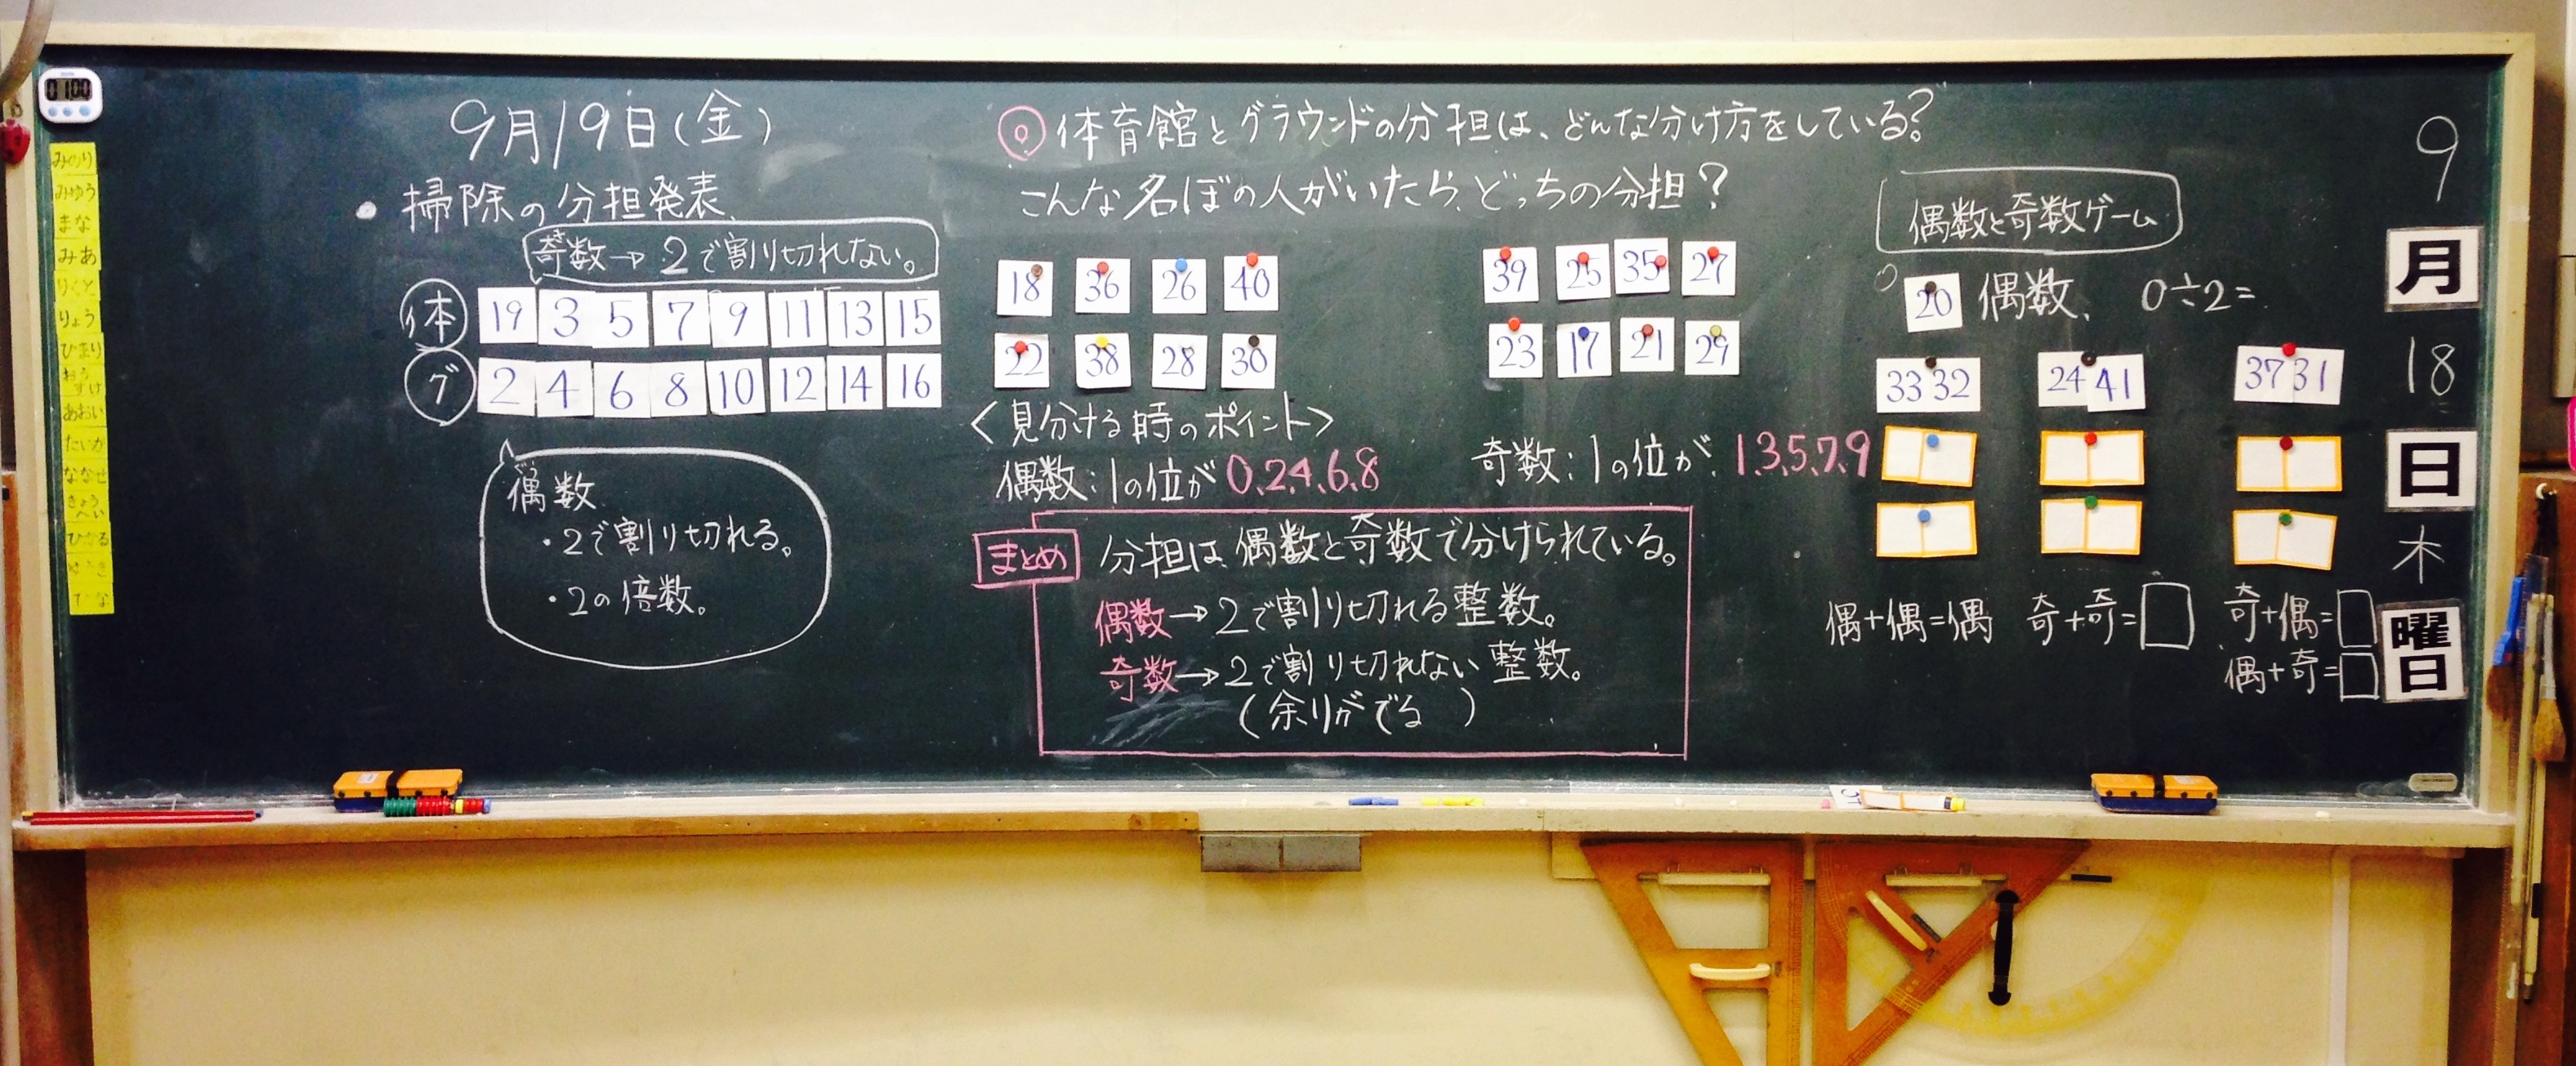 01:00
みのり
みゆう
まな
みあ
りくと
りょう
ひまり
おうすけ
あおい
たいが
ななせ
きょうへい
ひかる
9月19日(金)
・掃除の分担発表
奇数→2で割り切れない。
体 19 3 5 7 9 11 13 15
グ 2 4 6 8 10 12 14 16
偶数
・2で割り切れる。
・2の倍数。
◎体育館とグラウンドの分担は、どんな分け方をしている?
こんな名ぼの人がいたら、どっちの分担?
18 36 26 40
22 38 28 30
39 25 35 27
23 17 21 29
<見分ける時のポイント>
偶数:1の位が0、2、4、6、8
奇数:1の位が、1、3、5、7、9
まとめ
分担は偶数と奇数で分けられている。
偶数→2で割り切れる整数。
奇数→2で割り切れない整数。
(余りがでる)
偶数と奇数ゲーム
20 偶数、 0÷2=
33 32 24 41 37 31
偶+偶=偶 奇+奇=□ 奇+偶=□
偶+奇=□
9
月
18
日
木
曜日